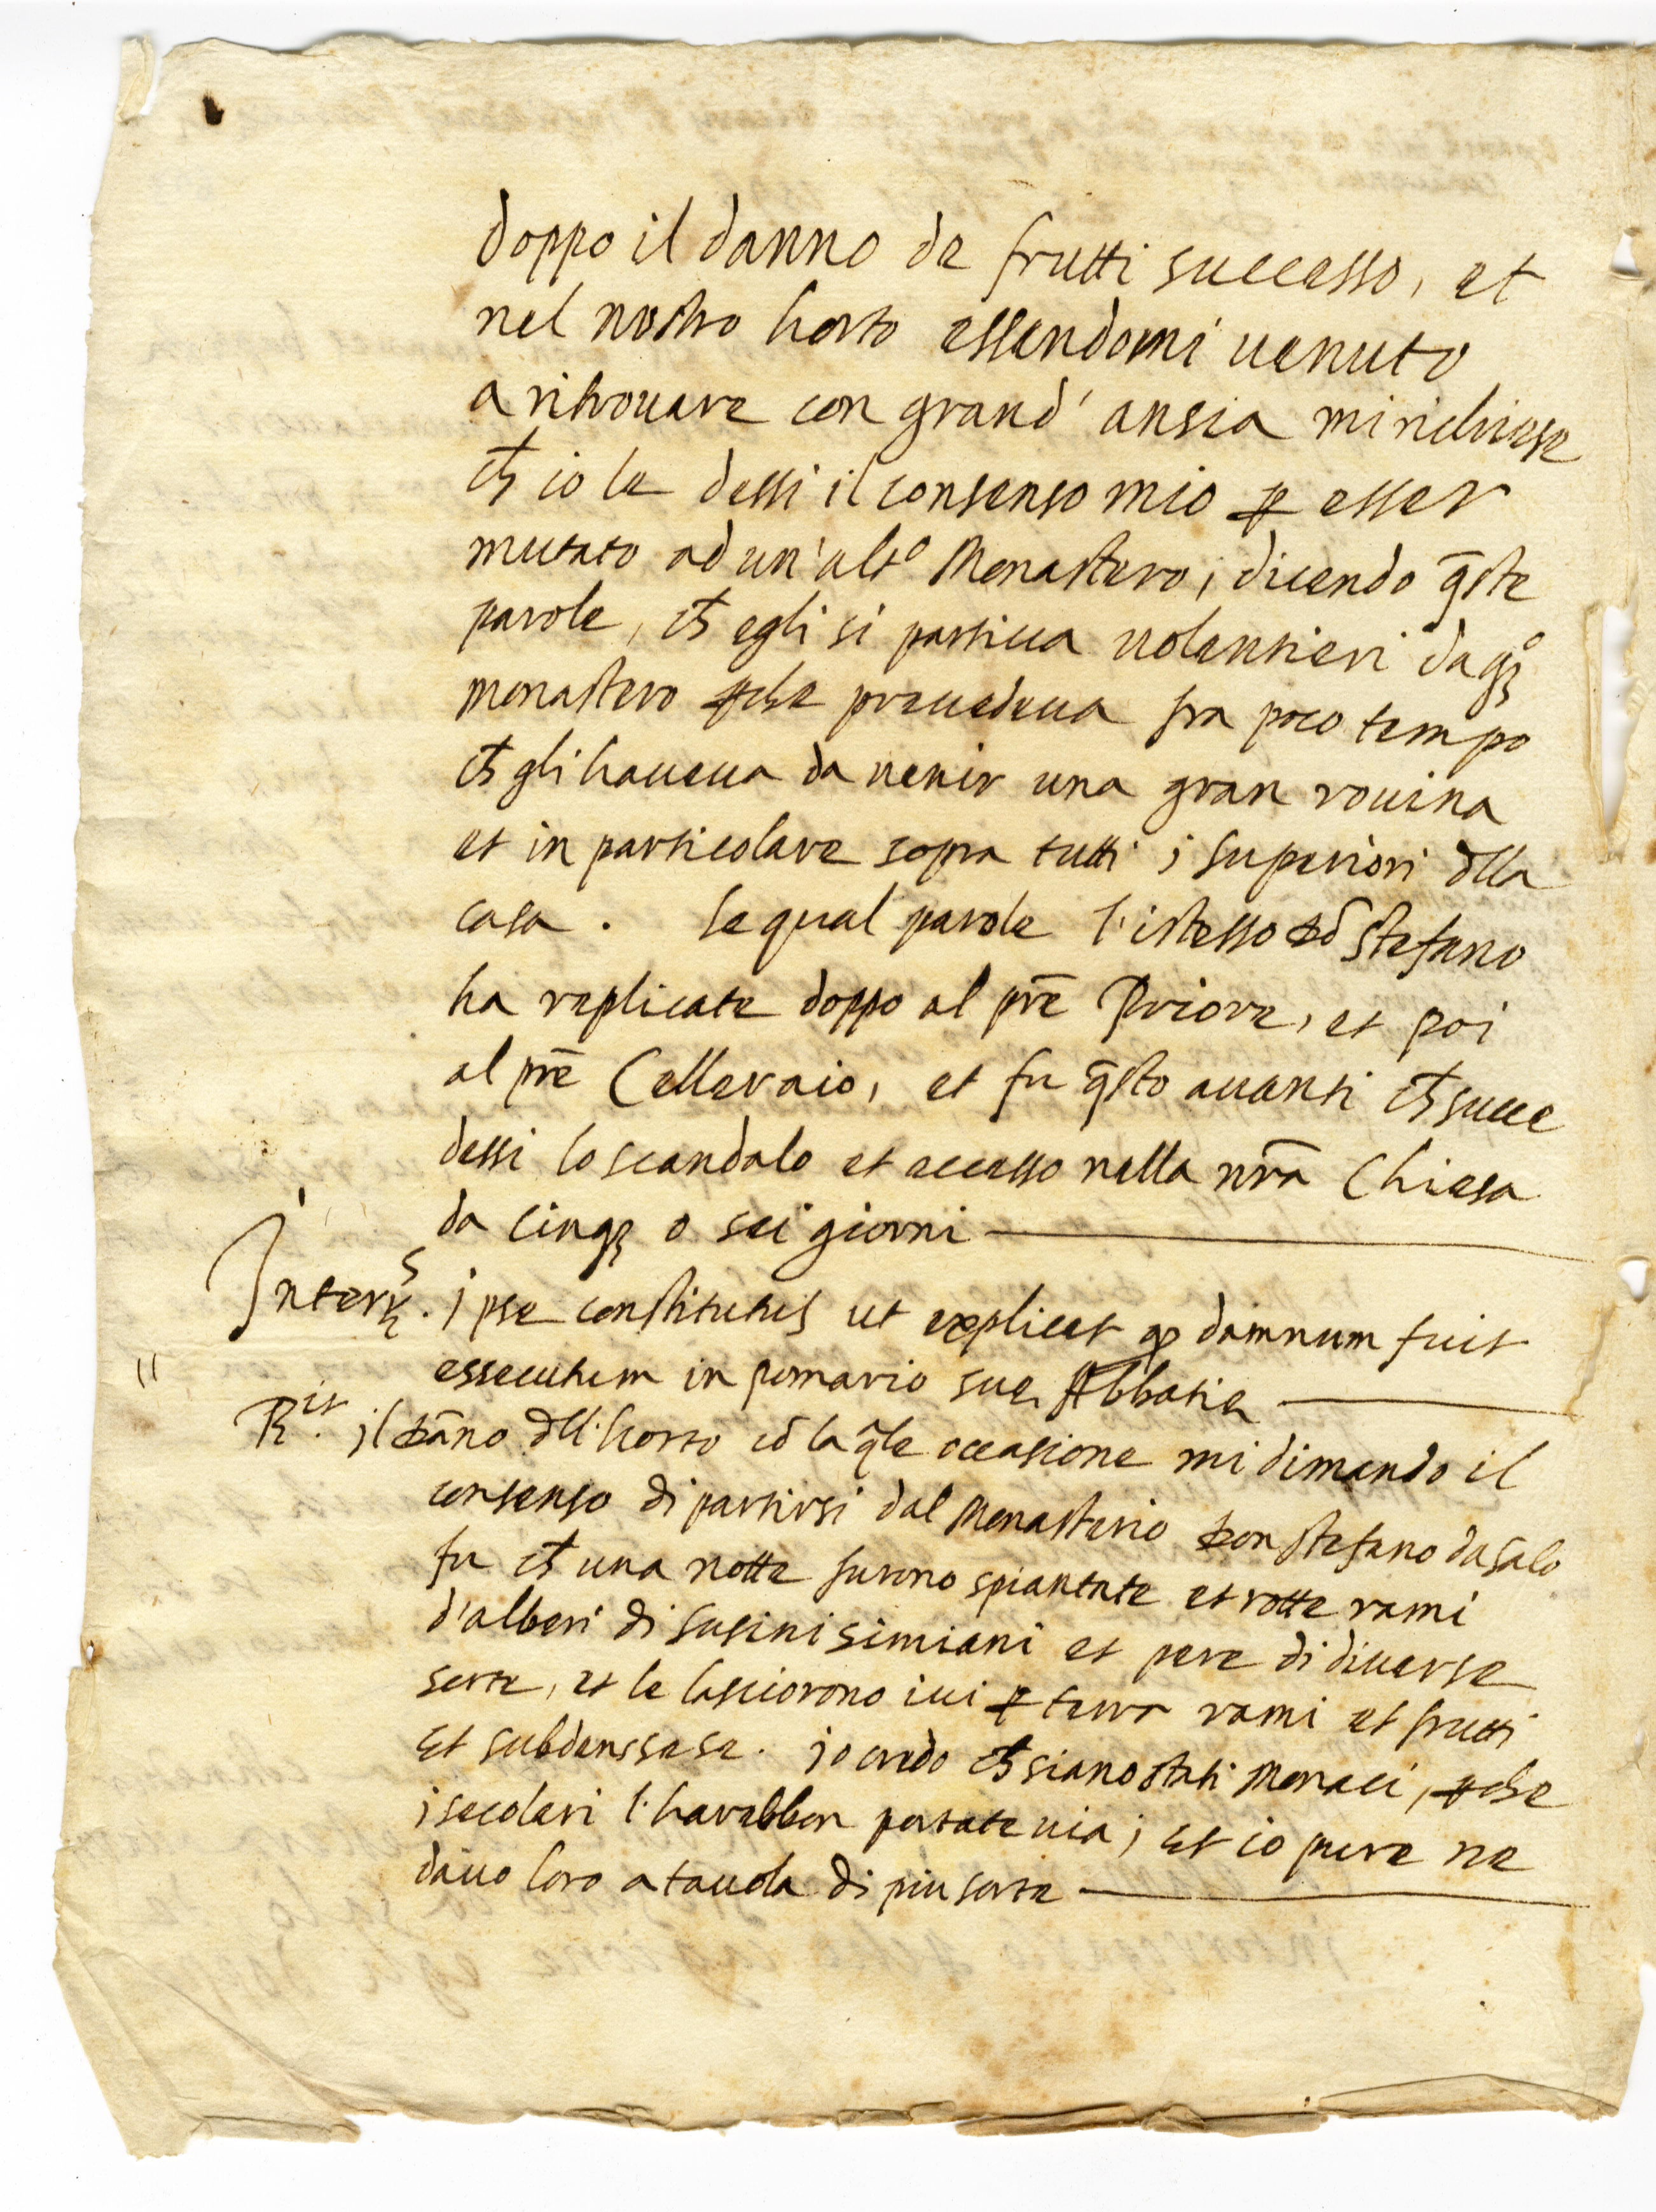 doppo il danno de frutti successo, et
nel nostro horto essendomi uenuto
a ritrouare con grand' ansia mi richiese
ch̄ io le dessi il consenso mio ꝑ esser
mutato ad un'altº Monastero, dicendo q̄ste
parole, ch̄ egli si partiua uolentieri da qº
monastero ꝑche preuedeua fra poco tempo
ch̄ gli haueua da uenir una gran rouina
et in particolare sopra tutti i superiori dlla
casa. le qual parole l'istesso Dō Stefano
ha replicate doppo al prē Priore, et poi
al prē Celleraio, et fu q̄sto auanti ch̄ succe
dessi lo scandalo et eccesso nella nrā Chiesa
da cinqꝫ o sei giorni
Interꝫˢ. ipse constitutus ut explicet qꝫ damnum fuit
essecutum in pomario sue Abbatie
" Rⁱᵗ. il dāno dll'horto cō la q̄le occasione mi dimando il
consenso di partirsi dal Monasterio Don Stefano da Salo
fu ch̄ una notte furono spiantate et rotte rami
d'alberi di susini simiani et pere di diuerse
sorte, et le lasciorono iui ꝑ terra rami et frutti
et io credo ch̄ siano stati Monaci, ꝑche
i secolari l'harebbon portate uia; et io pure ne
dauo loro a tauola di piu sorte